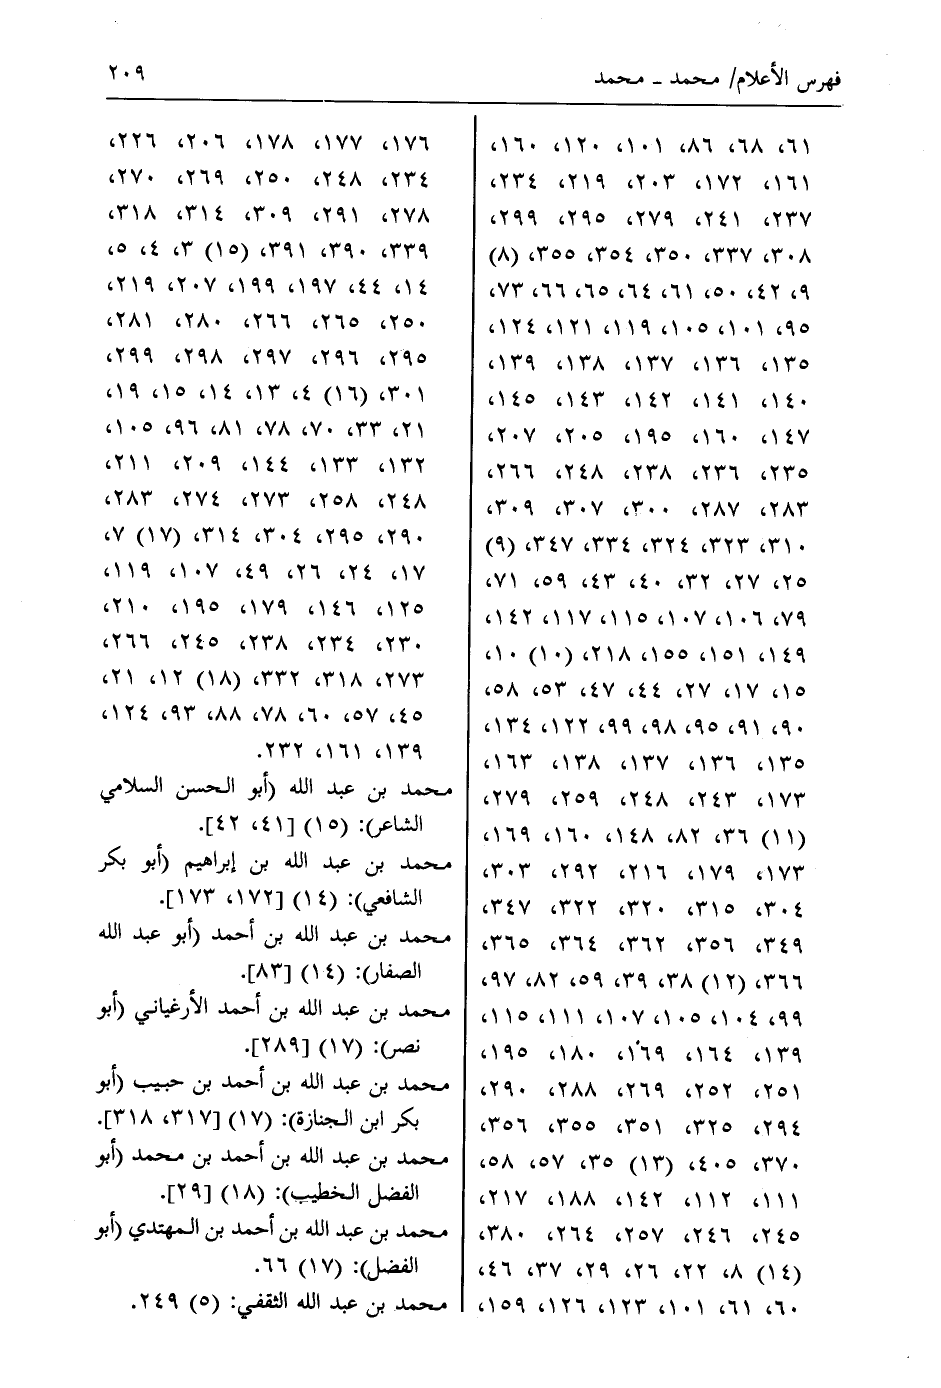 فهرس الأعلام/ محمد ـ محمد
٢٠٩
٦١، ٦٨، ٨٦، ١٠١، ١٢٠، ١٦٠،
١٦١، ١٧٢، ٢٠٣، ٢١٩، ٢٣٤،
٢٣٧، ٢٤١، ٢٧٩، ٢٩٥، ٢٩٩،
٣٠٨، ٣٣٧، ٣٥٠، ٣٥٤، ٣٥٥، (٨)
٩، ٤٢، ٥٠، ٦١، ٦٤، ٦٥، ٦٦، ٧٣،
٩٥، ١٠١، ١٠٥، ١١٩، ١٢١، ١٢٤،
١٣٥، ١٣٦، ١٣٧، ١٣٨، ١٣٩،
١٤٠، ١٤١، ١٤٢، ١٤٣، ١٤٥،
١٤٧، ١٦٠، ١٩٥، ٢٠٥، ٢٠٧،
٢٣٥، ٢٣٦، ٢٣٨، ٢٤٨، ٢٦٦،
٢٨٣، ٢٨٧، ٣٠٠، ٣٠٧، ٣٠٩،
٣١٠، ٣٢٣، ٣٢٤، ٣٣٤، ٣٤٧، (٩)
٢٥، ٢٧، ٣٢، ٤٠، ٤٣، ٥٩، ٧١،
٧٩، ١٠٦، ١٠٧، ١١٥، ١١٧، ١٤٢،
١٤٩، ١٥١، ١٥٥، ٢١٨، (١٠) ١٠،
١٥، ١٧، ٢٧، ٤٤، ٤٧، ٥٣، ٥٨،
٩٠، ٩١، ٩٥، ٩٨، ٩٩، ١٢٢، ١٣٤،
١٣٥، ١٣٦، ١٣٧، ١٣٨، ١٦٣،
١٧٣، ٢٤٣، ٢٤٨، ٢٥٩، ٢٧٩،
(١١) ٣٦، ٨٢، ١٤٨، ١٦٠، ١٦٩،
١٧٣، ١٧٩، ٢١٦، ٢٩٢، ٣٠٣،
٣٠٤، ٣١٥، ٣٢٠، ٣٢٢، ٣٤٧،
٣٤٩، ٣٥٦، ٣٦٢، ٣٦٤، ٣٦٥،
٣٦٦، (١٢) ٣٨، ٣٩، ٥٩، ٨٢، ٩٧،
٩٩، ١٠٤، ١٠٥، ١٠٧، ١١١، ١١٥،
١٣٩، ١٦٤، ١٦٩، ١٨٠، ١٩٥،
٢٥١، ٢٥٢، ٢٦٩، ٢٨٨، ٢٩٠،
٢٩٤، ٣٢٥، ٣٥١، ٣٥٥، ٣٥٦،
٣٧٠، ٤٠٥، (١٣) ٣٥، ٥٧، ٥٨،
١١١، ١١٢، ١٤٢، ١٨٨، ٢١٧،
٢٤٥، ٢٤٦، ٢٥٧، ٢٦٤، ٣٨٠،
(١٤) ٨، ٢٢، ٢٦، ٢٩، ٣٧، ٤٦،
٦٠، ٦١، ١٠١، ١٢٣، ١٢٦، ١٥٩،
١٧٦، ١٧٧، ١٧٨، ٢٠٦، ٢٢٦،
٢٣٤، ٢٤٨، ٢٥٠، ٢٦٩، ٢٧٠،
٢٧٨، ٢٩١، ٣٠٩، ٣١٤، ٣١٨،
٣٣٩، ٣٩٠، ٣٩١، (١٥) ٣، ٤، ٥،
١٤، ٤٤، ١٩٧، ١٩٩، ٢٠٧، ٢١٩،
٢٥٠، ٢٦٥، ٢٦٦، ٢٨٠، ٢٨١،
٢٩٥، ٢٩٦، ٢٩٧، ٢٩٨، ٢٩٩،
٣٠١، (١٦) ٤، ١٣، ١٤، ١٥، ١٩،
٢١، ٣٣، ٧٠، ٧٨، ٨١، ٩٦، ١٠٥،
١٣٢، ١٣٣، ١٤٤، ٢٠٩، ٢١١،
٢٤٨، ٢٥٨، ٢٧٣، ٢٧٤، ٢٨٣،
٢٩٠، ٢٩٥، ٣٠٤، ٣١٤، (١٧) ٧،
١٧، ٢٤، ٢٦، ٤٩، ١٠٧، ١١٩،
١٢٥، ١٤٦، ١٧٩، ١٩٥، ٢١٠،
٢٣٠، ٢٣٤، ٢٣٨، ٢٤٥، ٢٦٦،
٢٧٣، ٣١٨، ٣٣٢، (١٨) ١٢، ٢١،
٤٥، ٥٧، ٦٠، ٧٨، ٨٨، ٩٣، ١٢٤،
١٣٩، ١٦١، ٢٣٢.
محمد بن عبد الله (أبو الحسن السلامي
الشاعر): (١٥) [٤١، ٤٢].
محمد بن عبد الله بن إبراهيم (أبو بكر
الشافعي): (١٤) [١٧٢، ١٧٣].
محمد بن عبد الله بن أحمد (أبو عبد الله
الصفار): (١٤) [٨٣].
محمد بن عبد الله بن أحمد الأرغياني (أبو
نصر): (١٧) [٢٨٩].
محمد بن عبد الله بن أحمد بن حبيب (أبو
بكر ابن الجنازة): (١٧) [٣١٧، ٣١٨].
محمد بن عبد الله بن أحمد بن محمد (أبو
الفضل الخطيب): (١٨) [٢٩].
محمد بن عبد الله بن أحمد بن المهتدي (أبو
الفضل): (١٧) ٦٦.
محمد بن عبد الله الثقفي: (٥) ٢٤٩.